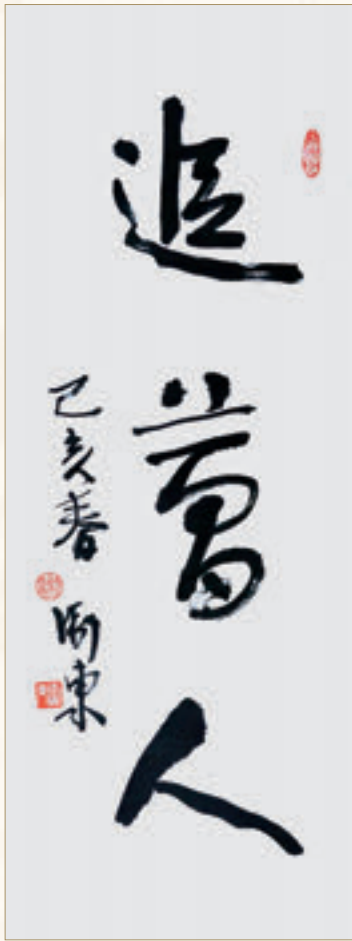 追夢人
己亥春
東